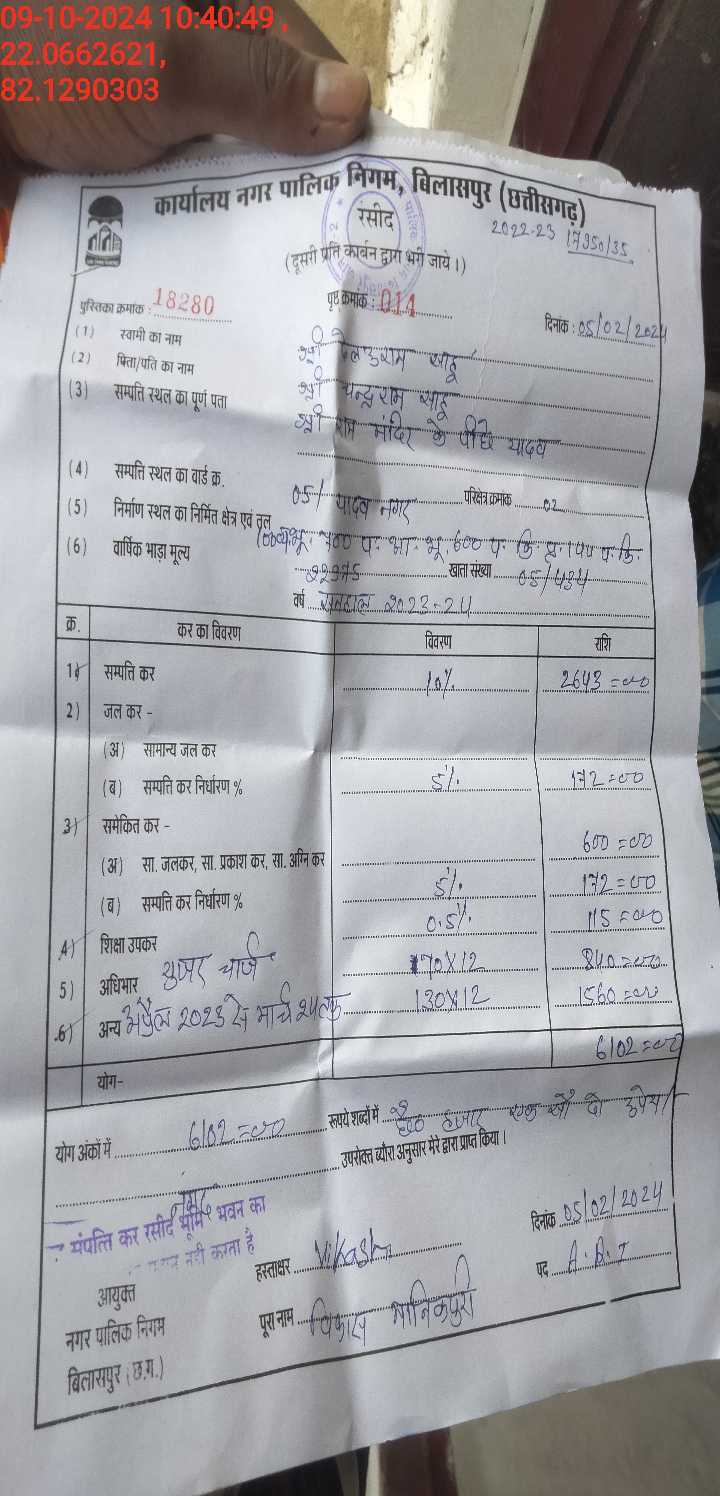 09-10-2024 10:40:49 ,
22.0662621,
82.1290303
कार्यालय नगर पालिक निगम, बिलासपुर (छत्तीसगढ़)
रसीद
2022-23 17950/35
(दूसरी प्रति कार्बन द्वारा भरी जाये।)
पुस्तिका क्रमांक : 18280 पृष्ठ क्रमांक : 014 दिनांक : 05/02/2024
(1) स्वामी का नाम श्री राम साहू
(2) पिता/पति का नाम श्री चन्द्र राम साहू
(3) सम्पत्ति स्थल का पूर्ण पता श्री राम मंदिर के पीछे यादव
(4) सम्पत्ति स्थल का वार्ड क्र. 05/ यादव नगर परिक्षेत्र क्रमांक 02
(5) निर्माण स्थल का निर्मित क्षेत्र एवं तल
(6) वार्षिक भाड़ा मूल्य 22975 खाता संख्या 05/434
वर्ष 2023-24
क्र. कर का विवरण विवरण राशि
1) सम्पत्ति कर 10% 2643=00
2) जल कर -
(अ) सामान्य जल कर
(ब) सम्पत्ति कर निर्धारण % 5% 172=00
3) समेकित कर -
(अ) सा. जलकर, सा. प्रकाश कर, सा. अग्नि कर 600=00
(ब) सम्पत्ति कर निर्धारण % 5% 172=00
4) शिक्षा उपकर 0.5% 115=00
5) अधिभार युजर चार्ज 70X12 840=00
6) अन्य अप्रैल 2023 से मार्च 24 तक 130X12 1560=00
योग- 6102=00
योग अंकों में 6102=00 रूपये शब्दों में हजार एक सौ दो
उपरोक्त ब्यौरा अनुसार मेरे द्वारा प्राप्त किया।
नगद
संपत्ति कर रसीद भूमि भवन का
नहीं करता है
हस्ताक्षर Vikash दिनांक 05/02/2024
आयुक्त पद A.R.I
नगर पालिक निगम पूरा नाम विकास मानिकपुरी
बिलासपुर (छ.ग.)